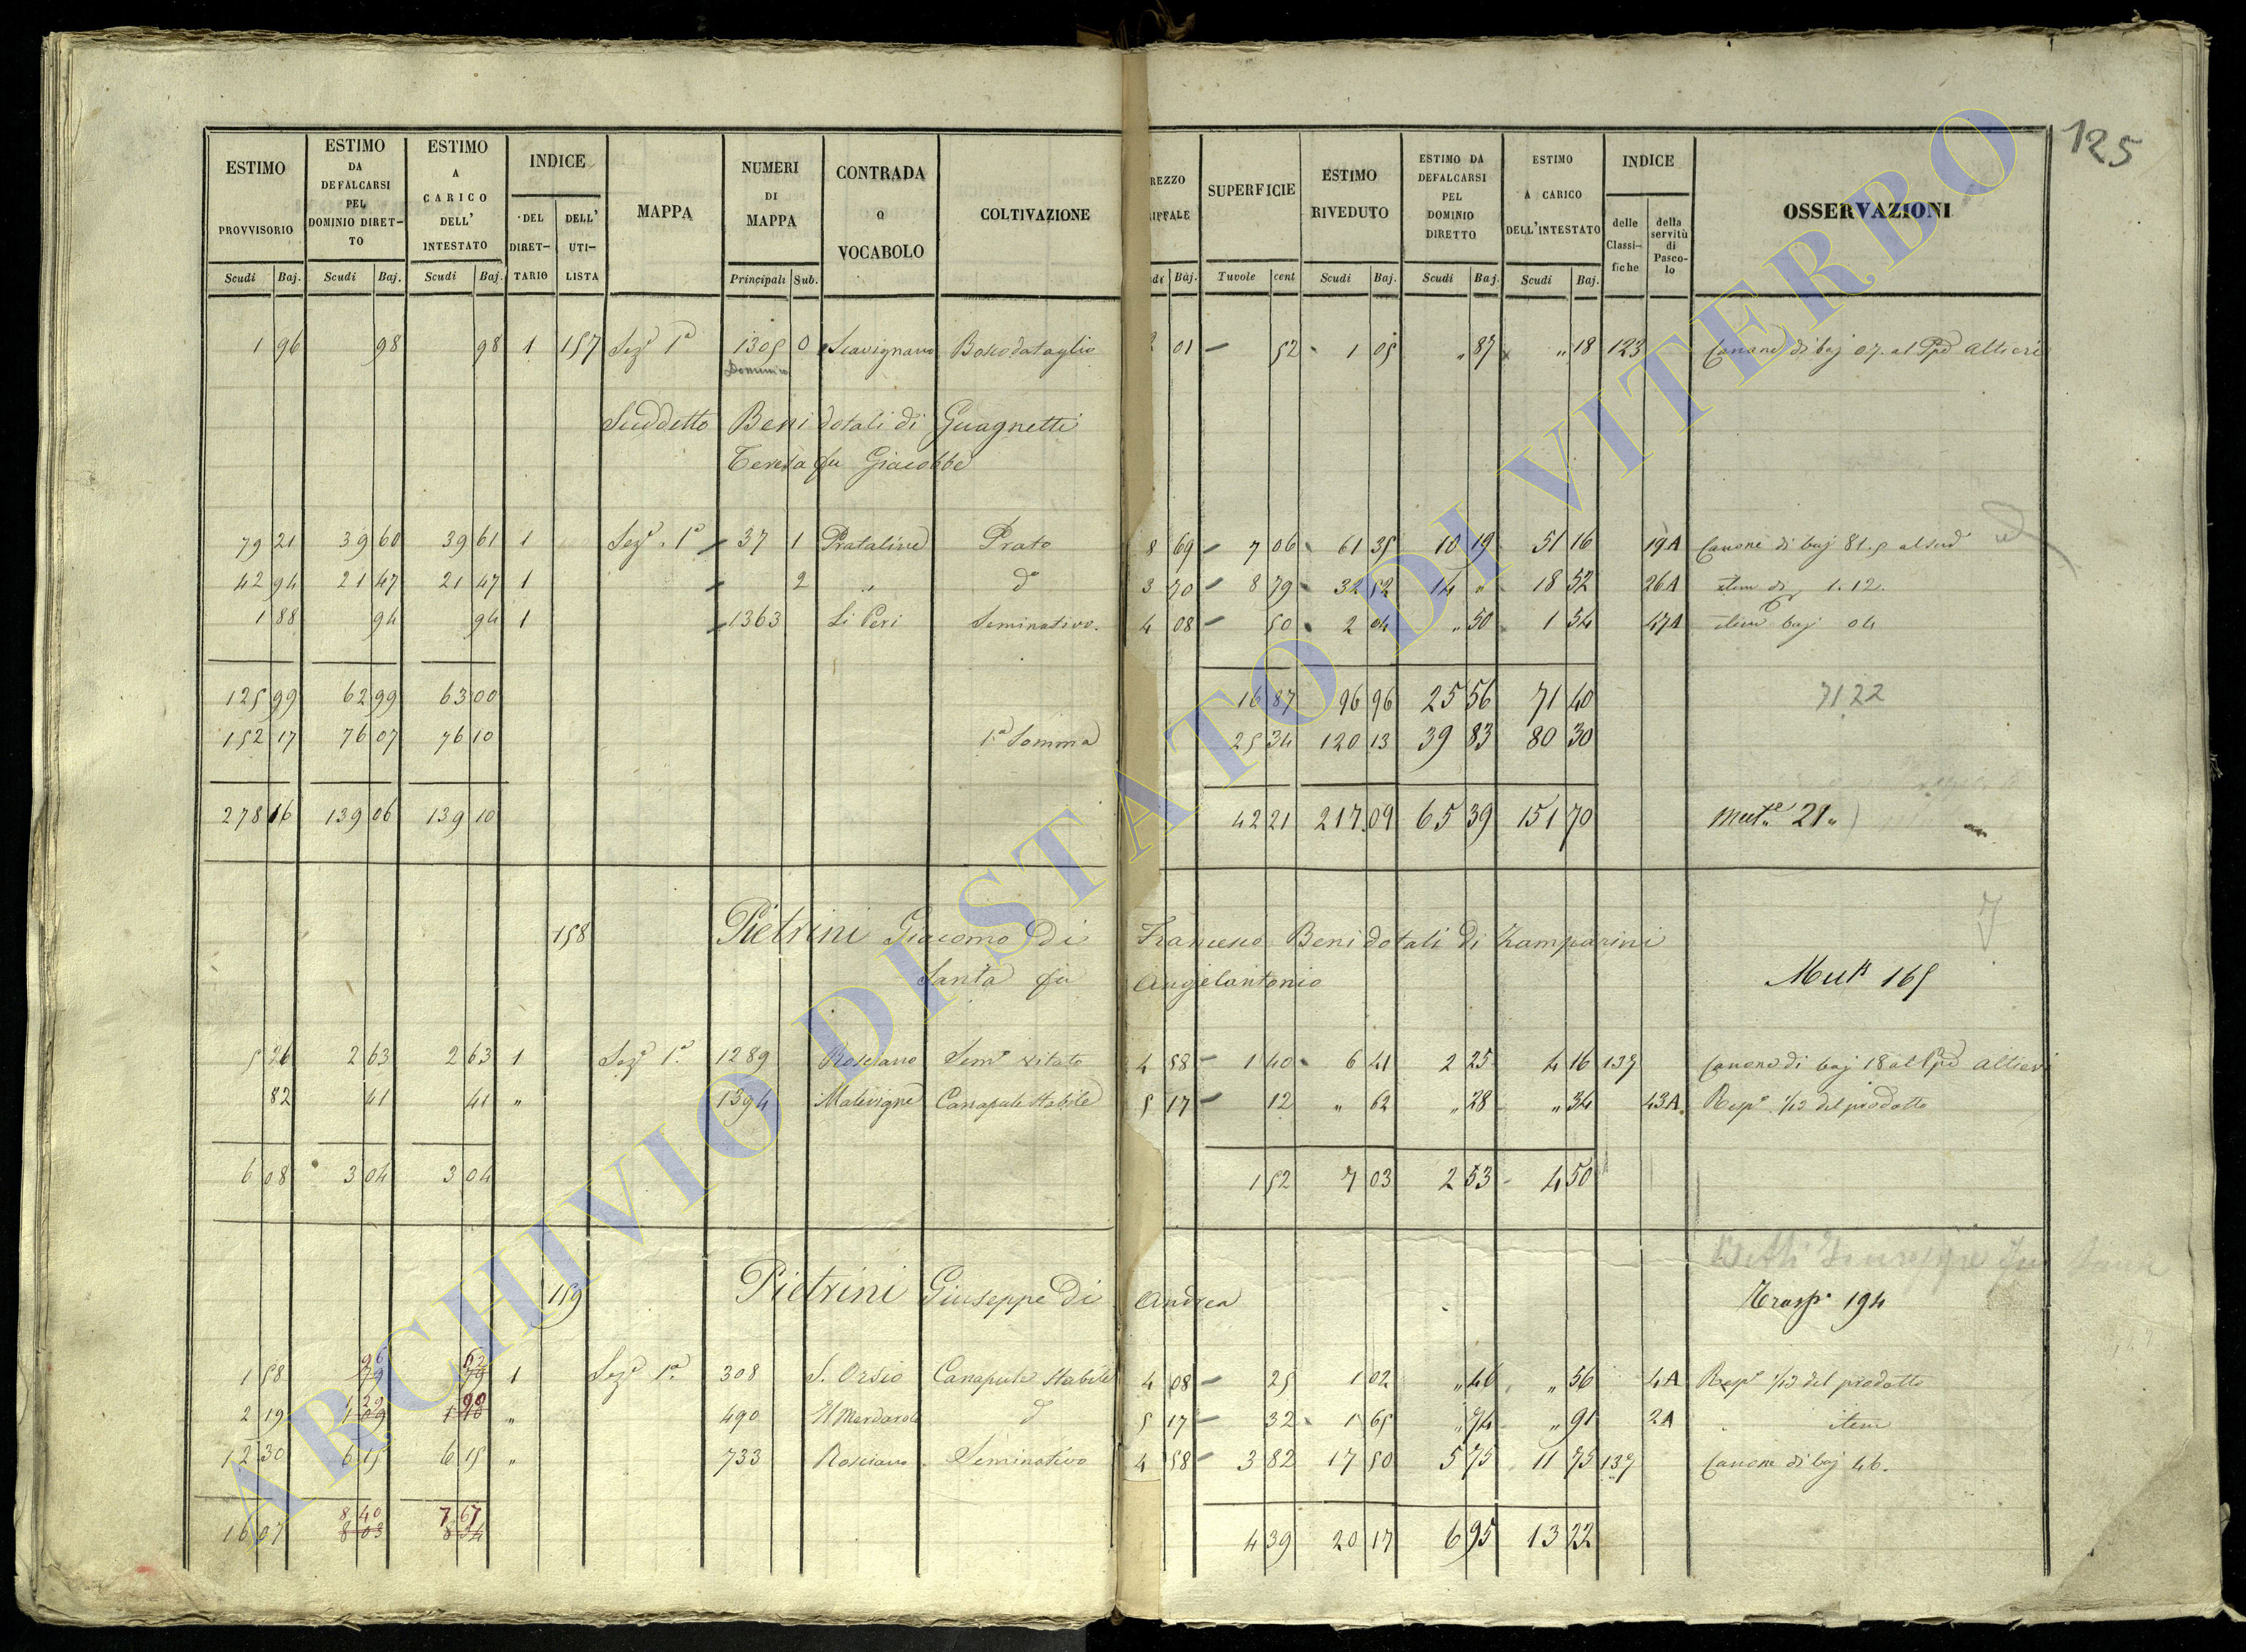 125
ESTIMO PROVVISORIO Scudi Baj.
ESTIMO DA DEFALCARSI PEL DOMINIO DIRETTO Scudi Baj.
ESTIMO A CARICO DELL' INTESTATO Scudi Baj.
INDICE DEL DIRETTARIO DELL' UTILISTA
MAPPA
NUMERI DI MAPPA Principali Sub.
CONTRADA o VOCABOLO
COLTIVAZIONE
REZZO IFFALE di Baj.
SUPERFICIE Tavole cent
ESTIMO RIVEDUTO Scudi Baj.
ESTIMO DA DEFALCARSI PEL DOMINIO DIRETTO Scudi Baj.
ESTIMO A CARICO DELL'INTESTATO Scudi Baj.
INDICE delle Classifiche della servitù di Pascolo
OSSERVAZIONI
1 96 98 98 1 157 Sez.e 1a 1305 0 Scavignano Bosco da taglio 2 01 52 1 05 " 87 " 18 123 Canone di baj 07. al Ppe Altieri
Suddetto Beni dotali di Guagnetti
Teresa fu Giacobbe
79 21 39 60 39 61 1 Sez.e 1a 37 1 Prataline Prato 8 69 7 06 61 35 10 19 51 16 19A Canone di baj 81.5 al sud.o
42 94 21 47 21 47 1 2 " do 3 70 8 79 32 52 14 " 18 52 26A item di 1.12.
1 88 94 94 1 1363 Li Peri Seminativo. 4 08 50 2 04 " 50 1 54 47A item baj 04
125 99 62 99 63 00 16 87 96 96 25 56 71 40 71 22
152 17 76 07 76 10 1a Somma 25 34 120 13 39 83 80 30
278 16 139 06 139 10 42 21 217.09 65 39 151 70 Mut.e 21
158 Pietrini Giacomo di Francesco Beni dotali di Zamparini
Santa fu Angelantonio Mut. 165
5 26 2 63 2 63 1 Sez.e 1a 1289 Rosciano Sem.o vitato 4 58 1 40 6 41 2 25 4 16 137 Canone di baj 18 al Ppe Altieri
82 41 41 " 1394 Malevigne Canapule stabile 5 17 12 " 62 " 28 " 34 43A. Risp.e 1/12 del prodotto
6 08 3 04 3 04 1 52 7 03 2 53 4 50
159 Pietrini Giuseppe di Andrea Trasp. 194
1 58 96 79 62 79 1 Sez.e 1a 308 S. Orsio Canapule stabile 4 08 25 1 02 " 46 " 56 4A Risp.e 1/12 del prodotto
2 19 1 29 1 09 90 1 10 " 490 d 5 17 32 1 65 " 74 " 91 2A item
12 30 6 15 6 15 " 733 Rosciano Seminativo 4 58 3 82 17 50 5 75 11 75 137 Canone di baj 46.
16 07 8 40 8 03 7 67 8 04 4 39 20 17 6 95 13 22
ARCHIVIO DI STATO DI VITERBO